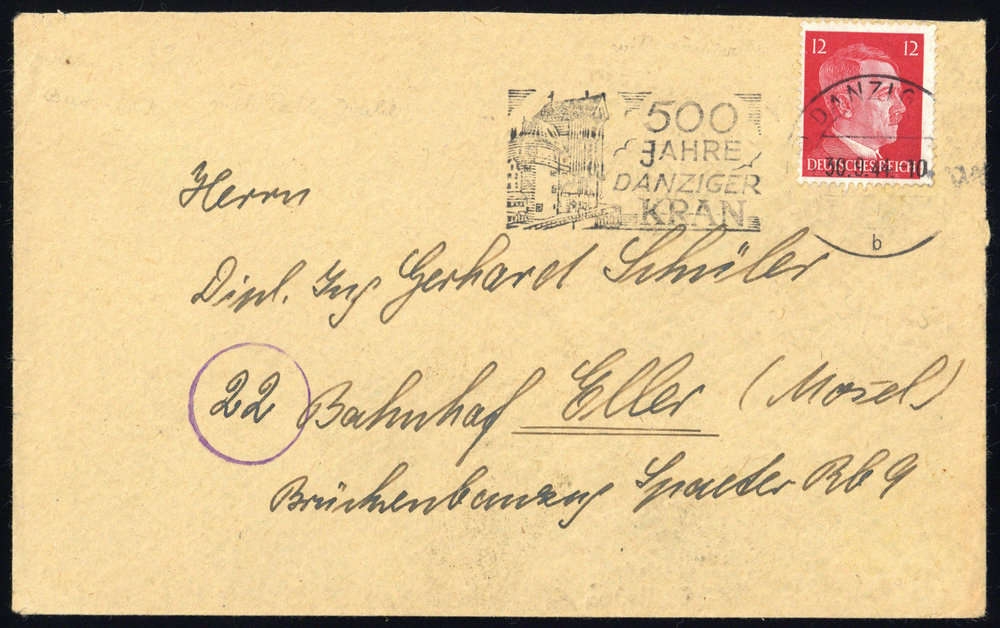 12 12
DEUTSCHES REICH
DANZIG
10
b
500
JAHRE
DANZIGER
KRAN
Herrn
Dipl. Ing Gerhard Schüler
22 Bahnhof Eller (Mosel)
Brückenbauzug Spaeter Rb 9